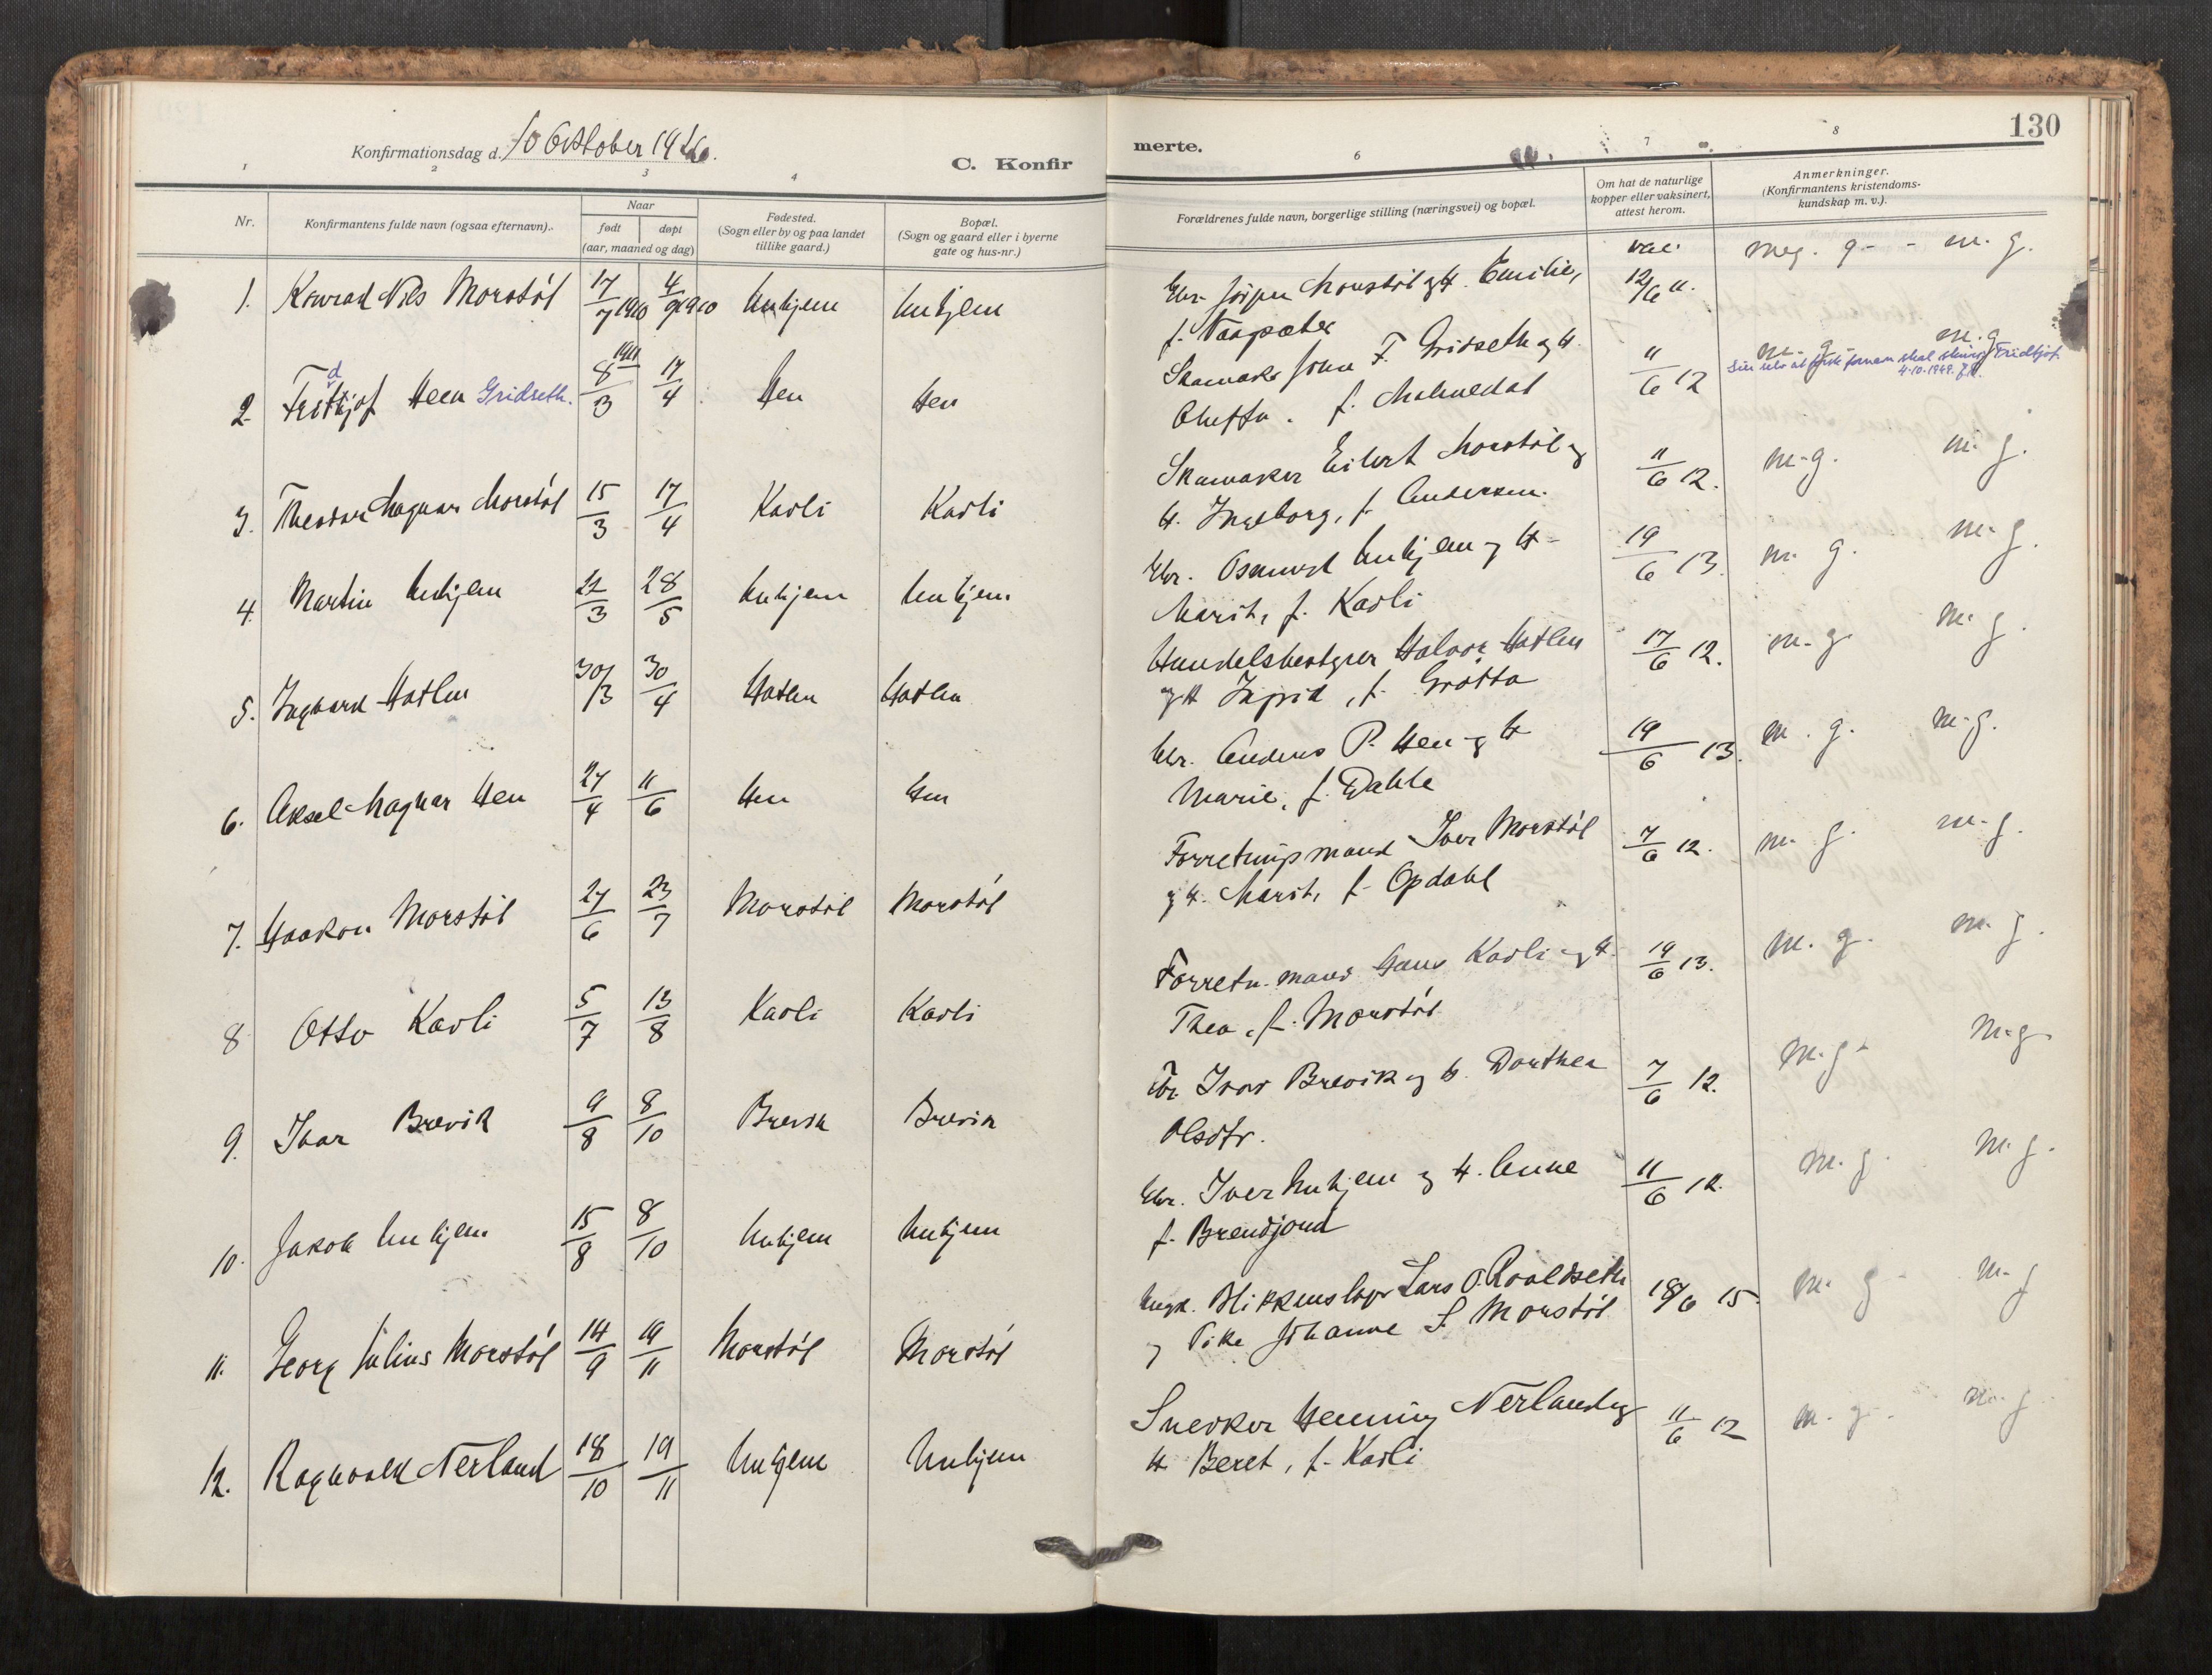 130
Konfirmationsdag d. 10 Oktober 1926.
C. Konfir
merte.
1 2 3 4 6 7 8
Nr.
Konfirmantens fulde navn (ogsaa efternavn).
Naar
født
døpt
(aar, maaned og dag)
Fødested.
(Sogn eller by og paa landet
tillike gaard.)
Bopæl.
(Sogn og gaard eller i byerne
gate og hus-nr.)
Forældrenes fulde navn, borgerlige stilling (næringsvei) og bopæl.
Om hat de naturlige
kopper eller vaksinert,
attest herom.
Anmerkninger.
(Konfirmantens kristendoms-
kundskap m. v.).
1. Konrad Nils Morstøl 17/7 1910 4/9 1910 Unhjem Unhjem
Gbr. Jørgen Morstøl og H. Emilie, vac. 12/6 11. meg. g. - m. g.
f. Vaagsæter
2. Fridtjof Hen Gridseth. 1911 8/3 17/4 Hen Hen
Skomaker John F. Gridseth og H. 11/6 12 m. g. m. g.
Oluffa. f. Malmedal
4-10-1949.
3. Theodor Magnar Morstøl 15/3 17/4 Kavli Kavli
Skomaker Eilert Morstøl og 11/6 12. m. g. m. g.
H. Ingeborg, f. Andersen.
4. Martin Unhjem 22/3 28/5 Unhjem Unhjem
Gbr. Osmund Unhjem og H. 19/6 13. m. g. m. g.
Marit, f. Kavli
5. Ingvard Hatlen 30/3 30/4 Hatlen Hatlen
Handelsbestyrer Halvor Hatlen 17/6 12. m. g. m. g.
og H Ingrid, f. Grøtta
6. Aksel Magnar Hen 27/4 11/6 Hen Hen
Gbr. Anders P. Hen og H 19/6 13. m. g. m. g.
Marie, f. Dahle
7. Haakon Morstøl 27/6 23/7 Morstøl Morstøl
Forretningsmand Iver Morstøl 7/6 12. m. g. m. g.
og H. Marit, f. Opdahl
8. Otto Kavli 5/7 13/8 Kavli Kavli
Forretn. mand Hans Kavli og H. 19/6 13. m. g. m. g.
Thea, f. Morstøl
9. Ivar Brevik 9/8 8/10 Brevik Brevik
Gbr. Ivar Brevik og H. Dorthea 7/6 12. m. g. m. g.
Olsdtr.
10. Jakob Unhjem 15/8 8/10 Unhjem Unhjem
Gbr. Iver Unhjem og H. Anne 11/6 12. m. g. m. g.
f. Brendjord
11. Georg Julius Morstøl 14/9 19/11 Morstøl Morstøl
Ungk. Blikkenslager Lars O. Roaldseth 18/6 15. m. g. m. g
og Pike Johanne S. Morstøl
12. Ragnvald Nerland 18/10 19/11 Unhjem Unhjem
Snedker Henning Nerland og 11/6 12 m. g. m. g
H. Beret, f. Kavli